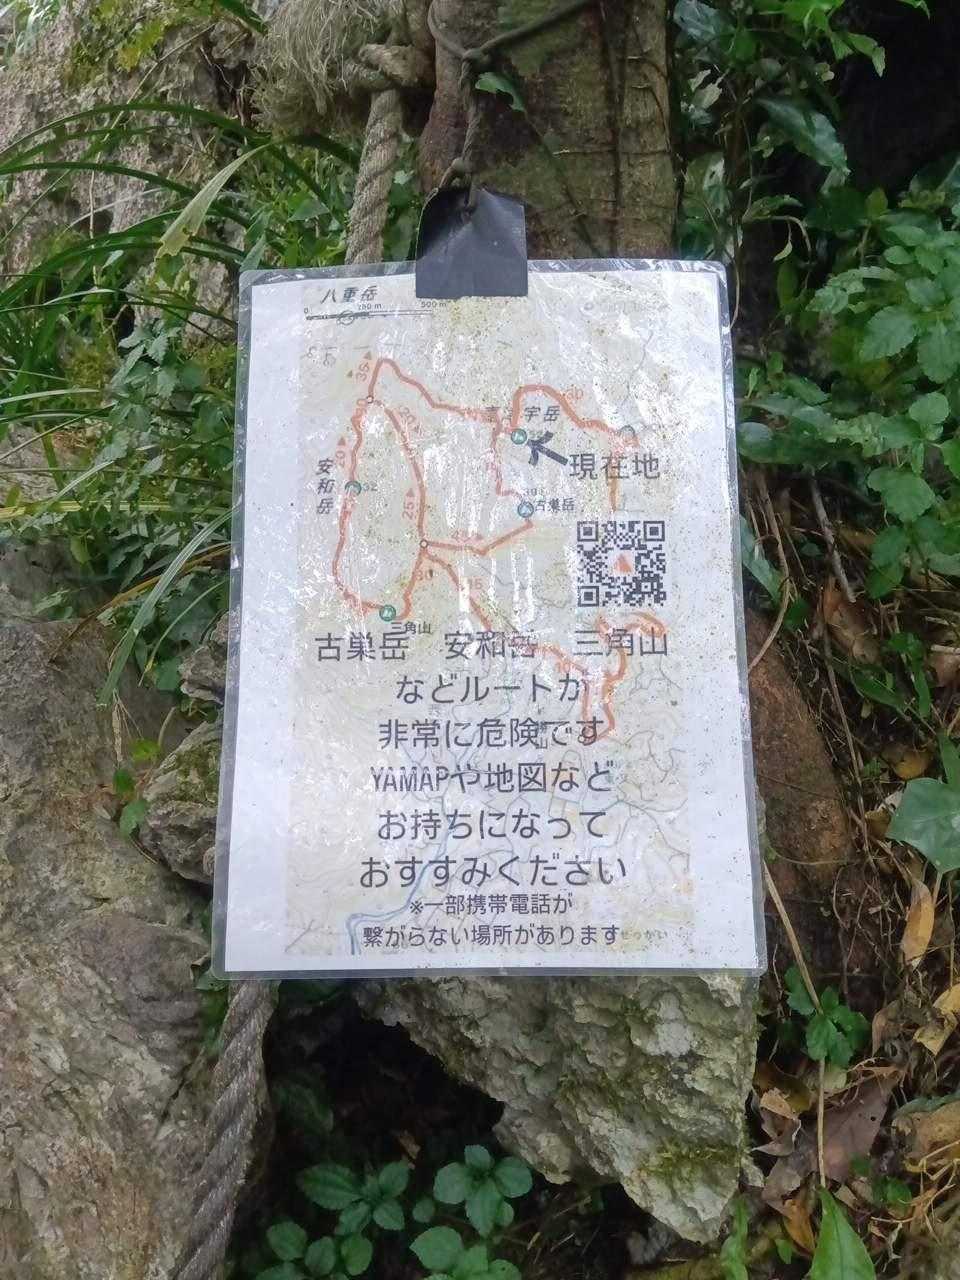 八重岳
0 250m 500m
35
20
安和岳
宇岳
現在地
古巣岳
25
30
15
三角山
古巣岳 安和岳 三角山
などルートが
非常に危険です
YAMAPや地図など
お持ちになって
おすすみください
※一部携帯電話が
繋がらない場所があります